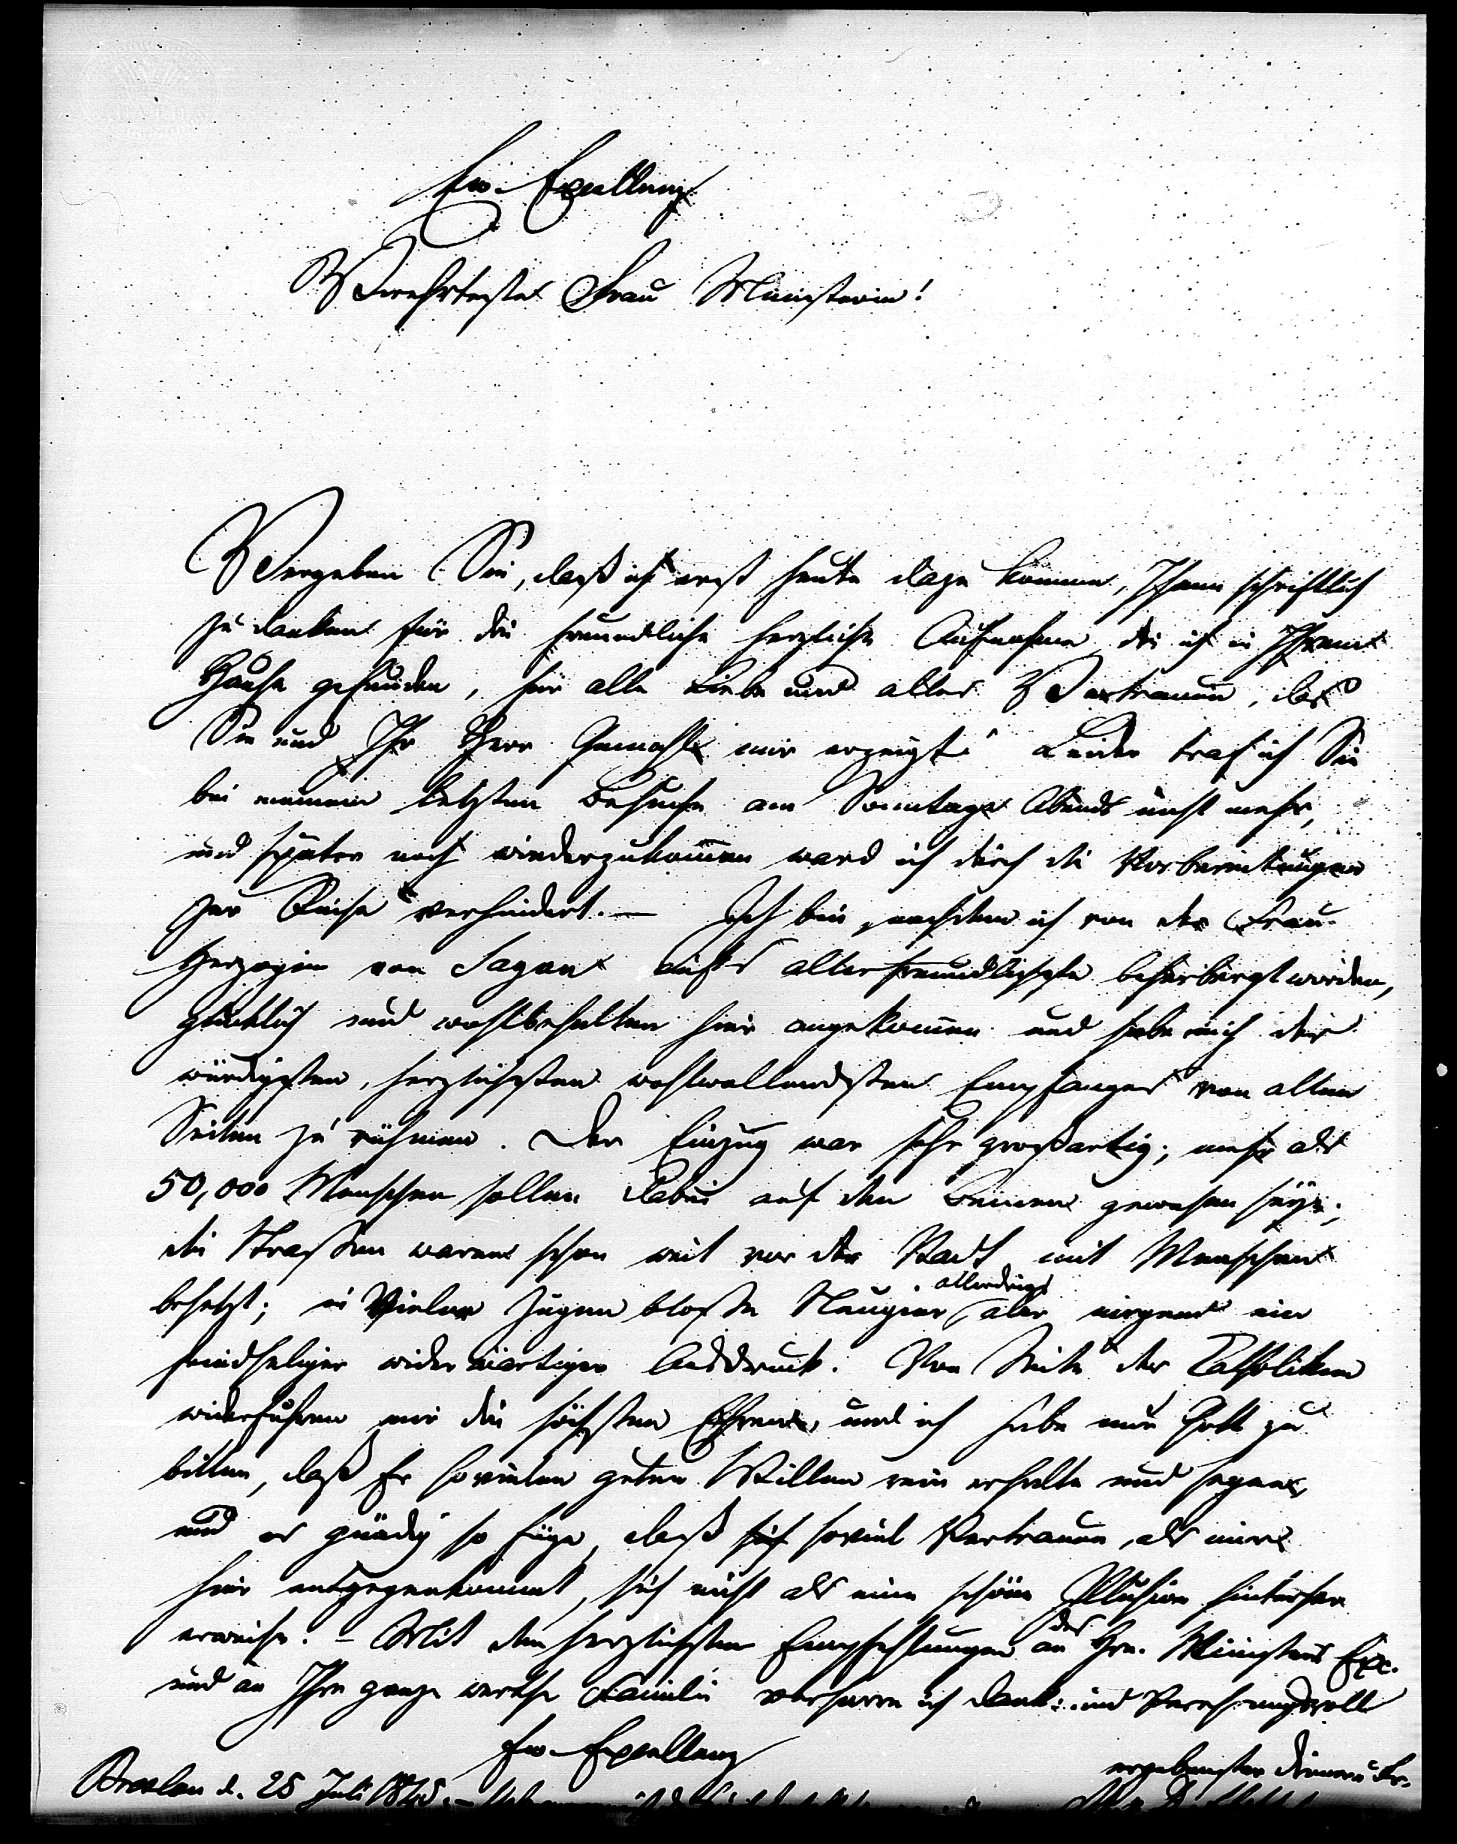 Ew. Excellenz
Verehrteste Frau Ministerin!
Vergeben Sie, daß ich erst heute dazu komme, Ihnen schriftlich
zu danken für die freundliche herzliche Aufnahme die ich in Ihrem
Hause gefunden, für alle Liebe und alles Vertrauen, das
Sie und Ihr Herr Gemahl mir erzeigt. Leider traf ich Sie
bei meinem letzten Besuche am Sonntage Abends nicht mehr,
und später noch wiederzukommen ward ich durch die Vorbereitungen
zur Reise verhindert. — Ich bin, nachdem ich von der Frau
Herzogin von Sagan aufs allerfreundlichste beherbergt worden,
glücklich und wohlbehalten hier angekommen und habe mich des
würdigsten, herzlichsten wohlwollendsten Empfanges von allen
Seiten zu rühmen. Der Einzug war sehr großartig; mehr als
50,000 Menschen sollen dabei auf den Beinen gewesen seyn;
die Straßen waren schon weit vor der Stadt mit Menschen
besetzt; in Vieler Zügen bloße Neugier allerdings, aber nirgend ein
feindseliger widerwärtiger Ausdruck. Von Seite der Katholiken
widerfuhren mir die höchsten Ehren, und ich habe nur Gott zu
bitten, daß Er sovielen guten Willen rein erhalte und segne,
und es gnädig so füge, daß soviel Vertrauen, als mir
hier entgegenkommt, sich nicht als eine schöne Illusion hinterher
erweise. – Mit den herzlichsten Empfehlungen an des Hrn. Ministers Exc.
und an Ihre ganze werthe Familie verharre ich dank- und Verehrungsvoll
Ew. Excellenz
ergebenster Diener u. Fr.
Breslau d. 25 Juli 1845. –